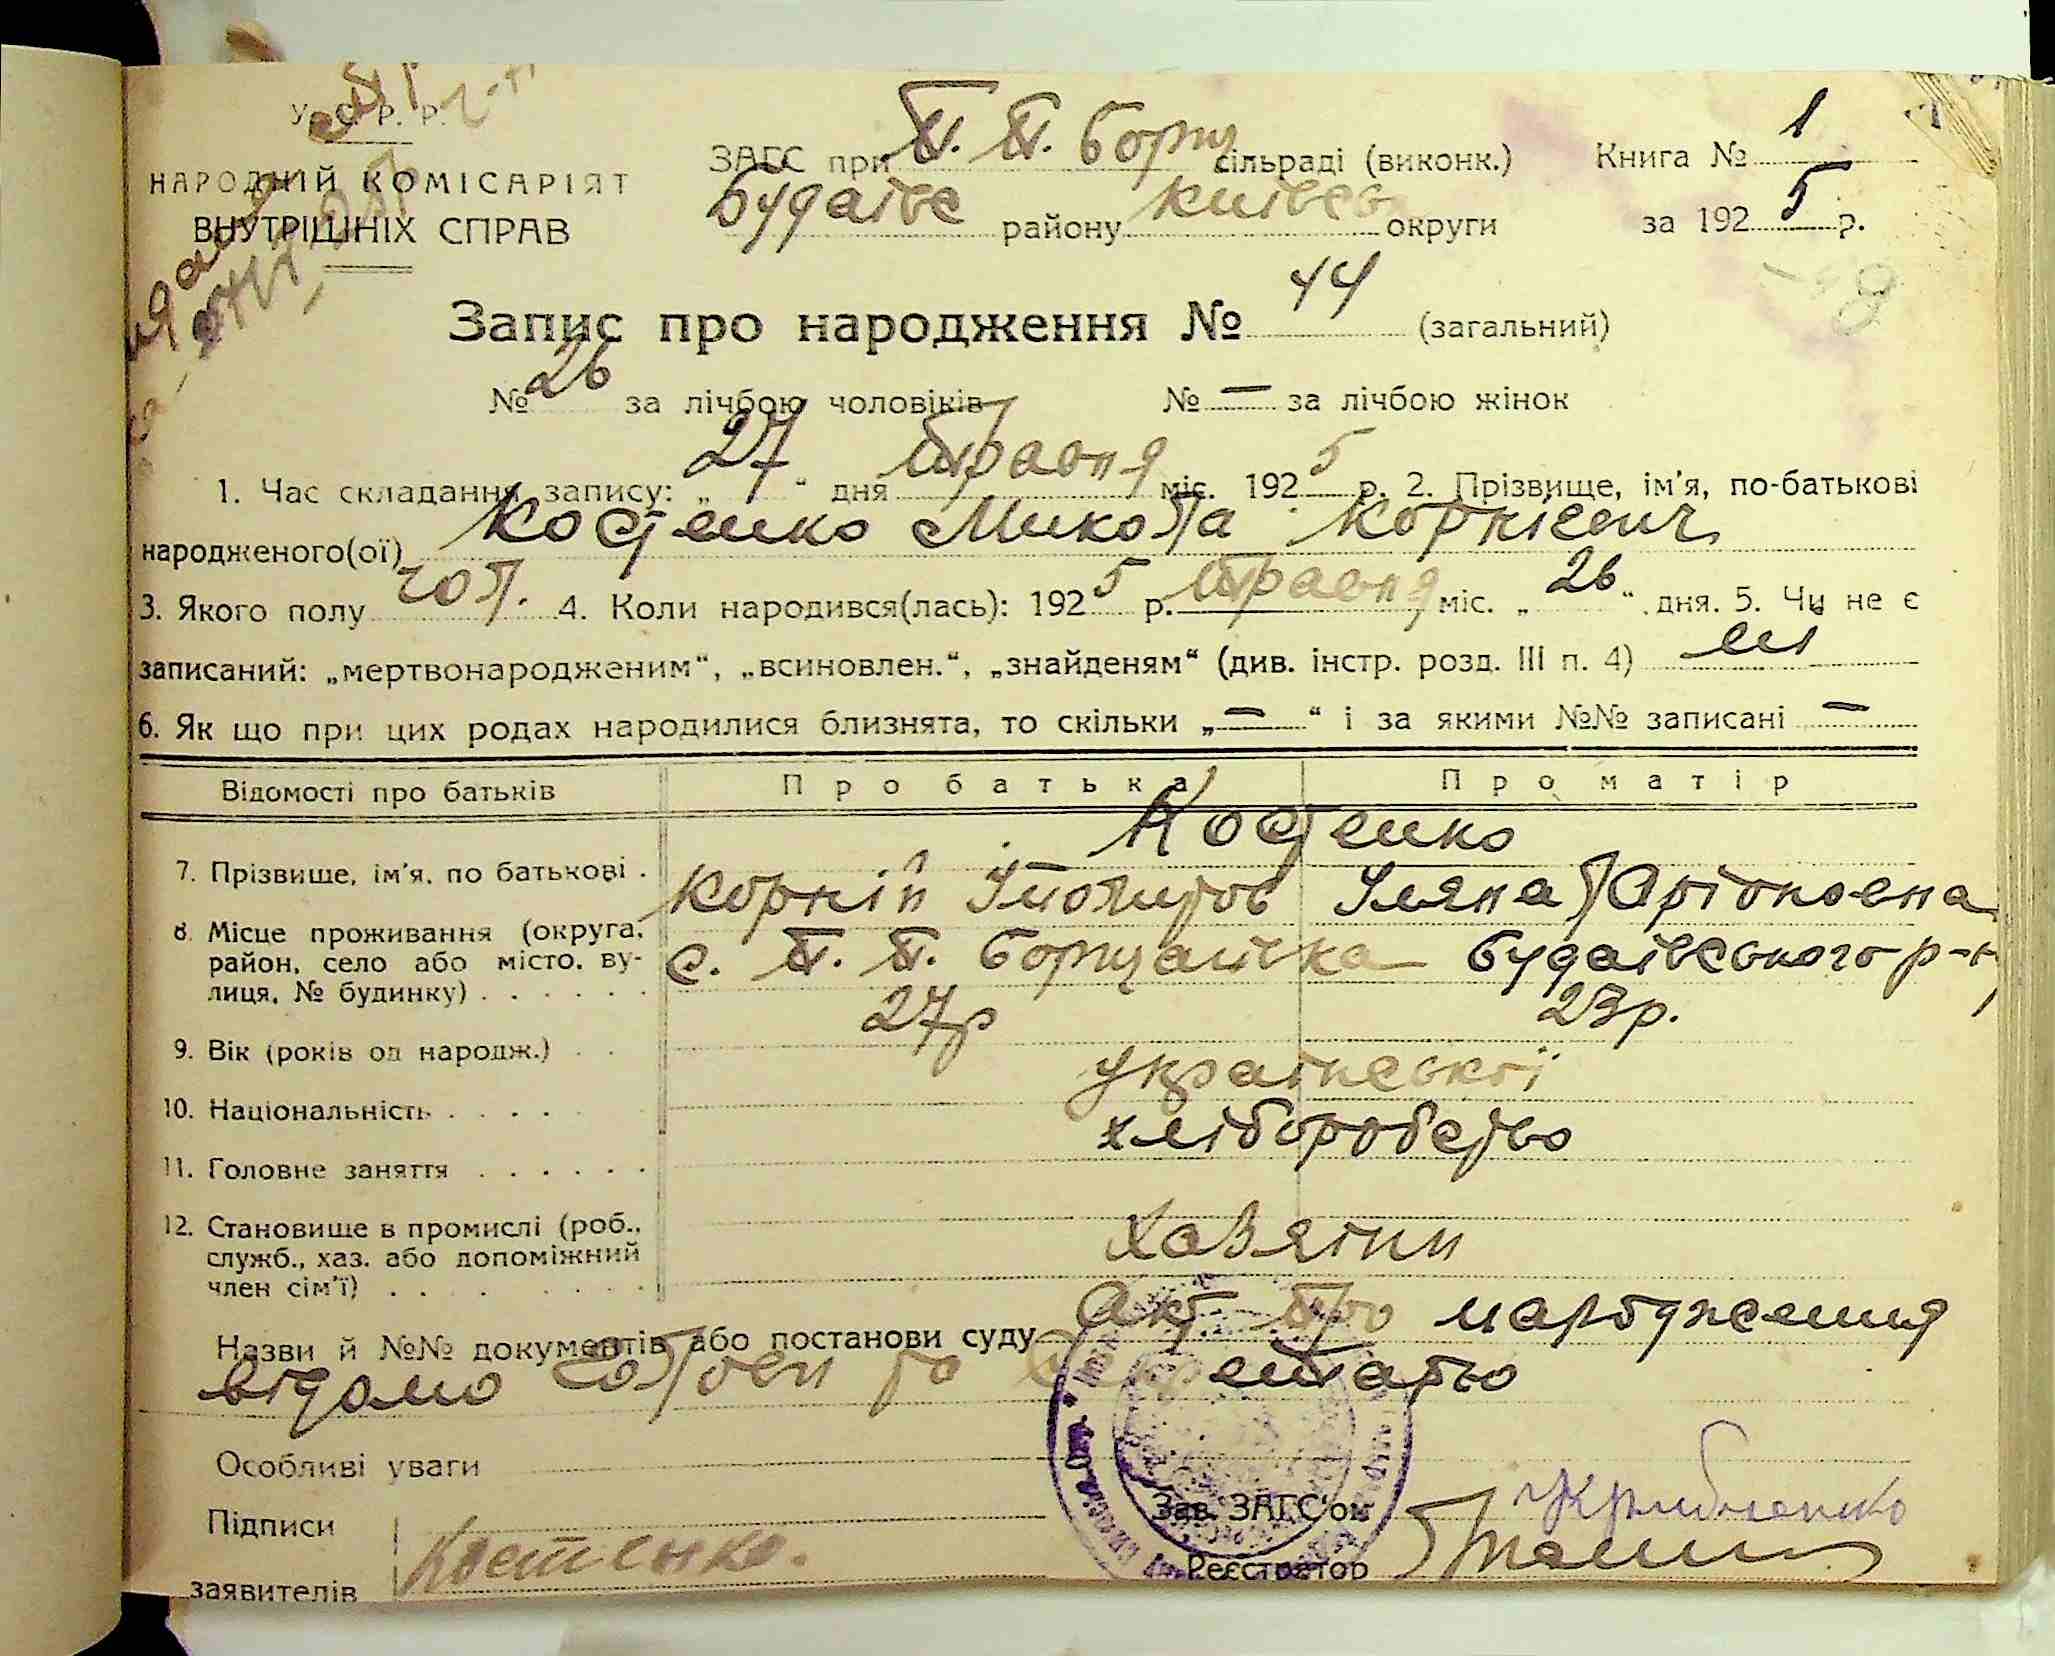 У. С. Р. Р.
НАРОДНІЙ КОМІСАРІЯТ
ВНУТРІШНІХ СПРАВ
ЗАГС при П. П. Борщ сільраді (виконк.)
Будаївс району Київськ округи
Книга № 1
за 1925 р.
Запис про народження № 44 (загальний)
№ 26 за лічбою чоловіків № — за лічбою жінок
1. Час складання запису: „27“ дня травня міс. 1925 р. 2. Прізвище, ім'я, по-батькові
народженого(ої) Костенко Микола Корнієвич
3. Якого полу чол. 4. Коли народився(лась): 1925 р. травня міс. „26“ дня. 5. Чи не є
записаний: „мертвонародженим“, „всиновлен.“, „знайденям“ (див. інстр. розд. III п. 4) ні
6. Як що при цих родах народилися близнята, то скільки „—“ і за якими №№ записані —
Відомості про батьків Про батька Про матір
Костенко
7. Прізвище, ім'я, по батькові . Корній Іполитов Уляна Ларіоновна
8. Місце проживання (округа, район, село або місто, вулиця, № будинку) . . . . . . с. П. П. Борщагівка Будаївського р-н
9. Вік (років од народж.) . . 27р 23р.
10. Національність . . . . . української
11. Головне заняття . . . . . . хліборобство
12. Становище в промислі (роб., служб., хаз. або допоміжний член сім'ї) . . . . . . . хазяїни
Назви й №№ документів або постанови суду Акт про народження
відомо голови та секретарю
Особливі уваги
Підписи
заявителів Костенко.
Зав. ЗАГС'ом
Реєстратор